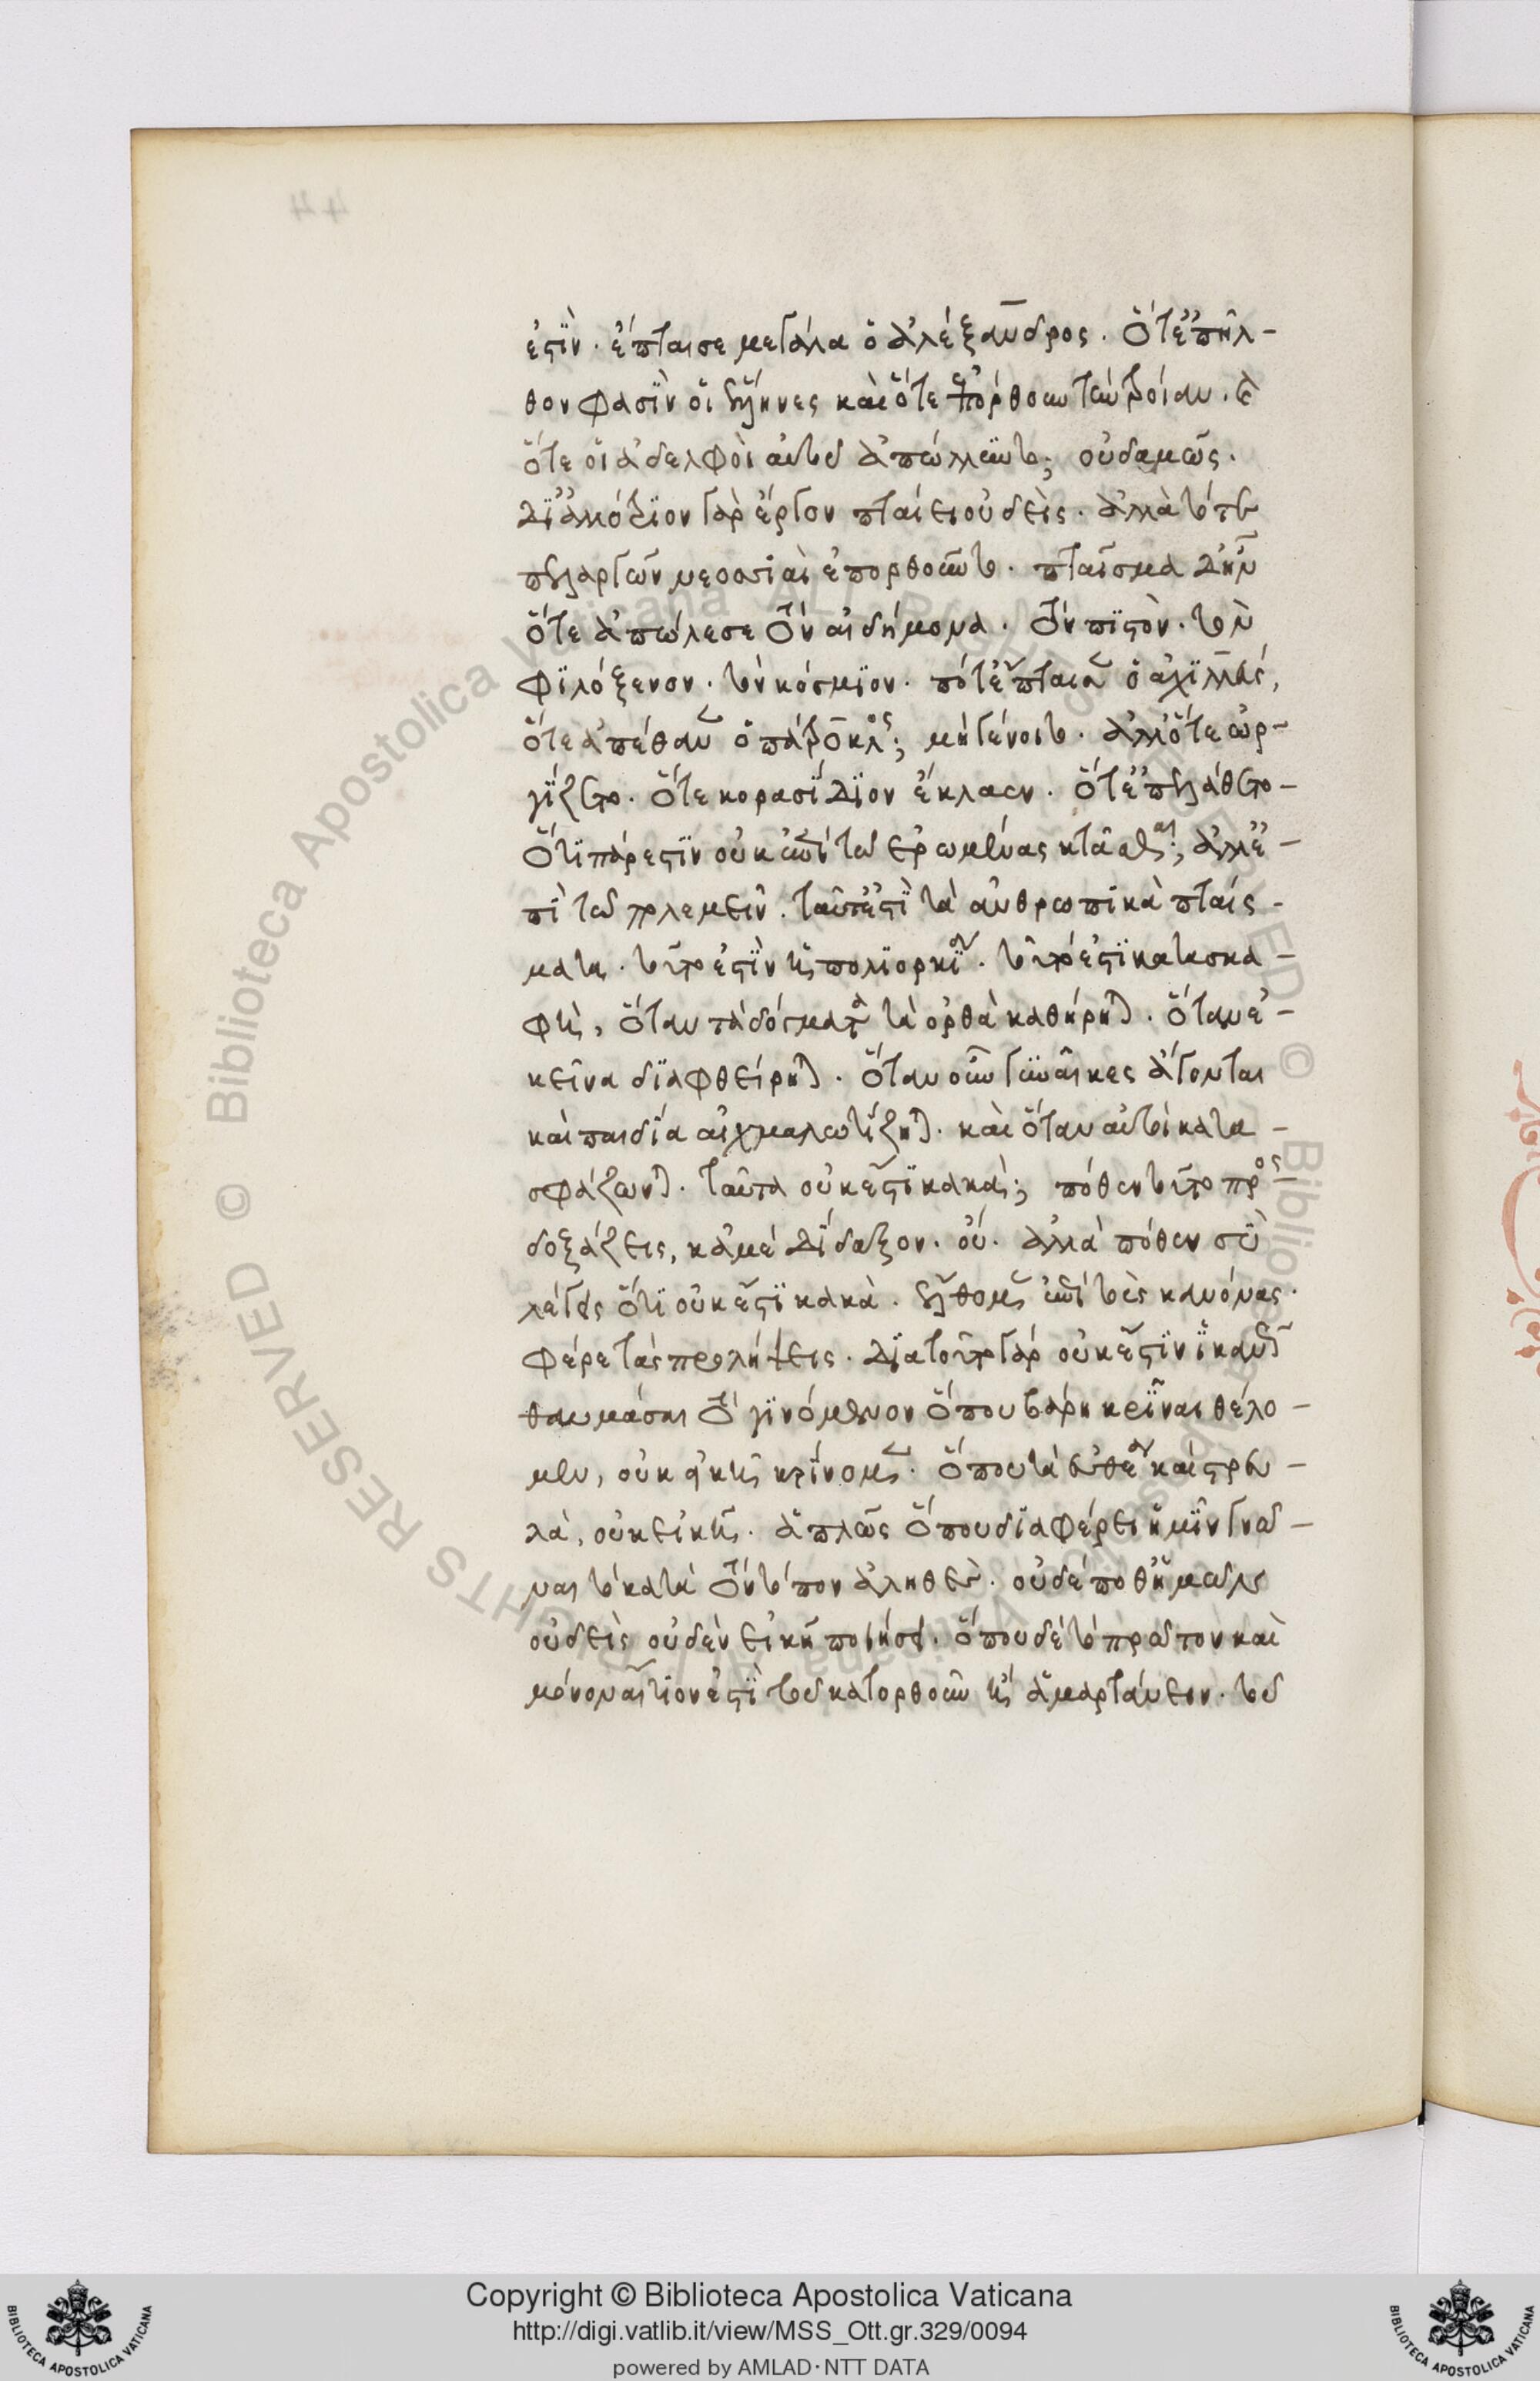 44
ἐστὶν. ἔπταισε μεγάλα ὁ ἀλέξανδρος. ὅτ' ἐπῆλ-
θον φασὶν οἱ ἕλληνες καὶ ὅτε ἐπόρθουν τὴν τροίαν. καὶ
ὅτε οἱ ἀδελφοὶ αὐτοῦ ἀπώλλυντο; οὐδαμῶς.
δι' ἀλλότριον γὰρ ἔργον πταίει οὐδείς. ἀλλὰ τότε
πελαργῶν νεοσσιαὶ ἐπορθοῦντο. πταῖσμα δ' ἦν
ὅτε ἀπώλεσε τὸν αἰδήμονα. τὸν πιστὸν. τὸν
φιλόξενον. τὸν κόσμιον. πότ' ἔπταισεν ὁ ἀχιλλεύς,
ὅτε ἀπέθανεν ὁ πάτροκλος; μὴ γένοιτο. ἀλλ' ὅτε ὠρ-
γίζετο. ὅτε κορασίδιον ἔκλαεν. ὅτ' ἐπελάθετο
ὅτι πάρεστιν οὐκ ἐπὶ τοῦ ἐρωμένας κτᾶσθαι; ἀλλ' ἐ-
πὶ τοῦ πολεμεῖν. ταῦτ' ἐστὶ τὰ ἀνθρωπικὰ πταίσ-
ματα. τοῦτο ἐστὶν ἡ πολιορκία. τοῦτό ἐστι κατασκα-
φὴ, ὅταν τὰ δόγματα τὰ ὀρθὰ καθήρηται. ὅταν ἐ-
κεῖνα διαφθείρηται. ὅταν οὖν γυναῖκες ἄγονται
καὶ παιδία αἰχμαλωτίζηται. καὶ ὅταν αὐτοὶ κατα-
σφάζωνται. ταῦτα οὐκ ἔστι κακὰ; πόθεν τοῦτο προς-
δοξάζεις, κἀμὲ δίδαξον. οὔ. ἀλλὰ πόθεν σὺ
λέγεις ὅτι οὐκ ἔστι κακὰ. ἔλθωμεν ἐπὶ τοὺς κανόνας.
φέρε τὰς προλήψεις. διὰ τοῦτο γὰρ οὐκ ἔστιν ἱκανῶς
θαυμάσαι τὸ γινόμενον ὅπου βάρη κρῖναι θέλο-
μεν, οὐκ εἰκῆ κρίνομεν. ὅπου τὰ εὐθέα καὶ στρεβ-
λὰ, οὐκ εἰκῆ. ἁπλῶς ὅπου διαφέρει ἡμῖν γνῶ-
ναι τὸ κατὰ τὸν τόπον ἀληθὲς. οὐδέποθ' ἡμῶν
οὐδεὶς οὐδὲν εἰκῆ ποιήσει. ὅπου δὲ τὸ πρῶτον καὶ
μόνον αἴτιον ἐστὶ τοῦ κατορθοῦν ἢ ἁμαρτάνειν. τοῦ
Copyright © Biblioteca Apostolica Vaticana
http://digi.vatlib.it/view/MSS_Ott.gr.329/0094
powered by AMLAD·NTT DATA